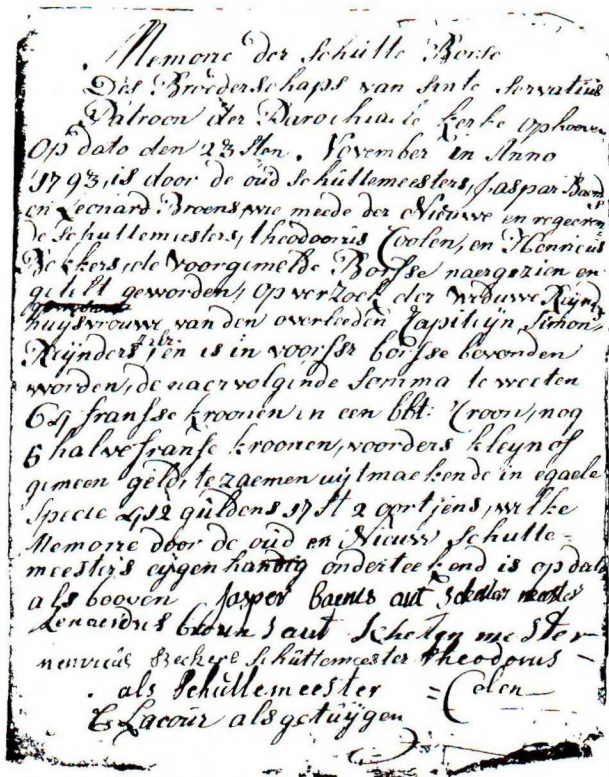 Memorie der Schutte Borse
Des Broederschaps van Sinte Servatiüs
Patroon der Parochiaele kerke ophooven
Op dato den 23 sten. November in Anno
1793, is door de oüd Schüttemeesters, Jaspar Baend
en Leonard Broens, wie meede der Nieuwe en regeeren
de Schuttemeesters, theodoorus Coolen, en Henricus
Bekkers, de voorgemelde Borsse naergezien en
getelt geworden, op verzoek der weduwe Reynd
huysvrouwe van den overleeden Capiteyn Simon,
Reijnders, en is in voorsse borsse bevonden
worden, de naervolginde Somma te weeten
64 fransse kroonen in een bbt: Croon, nog
6 halve franse kroonen, voorders kleyn of
gemeen geld, te zaemen uijtmaekende in egaele
Specie 412 guldens 17 st 2 oortjens, welke
Memorie door de oüd en Nieuw Schutte=
meesters eygenhandig onderteekend is op dato
als booven Jasper Baenes aut Schetter meester
Lenaerdus broun s aut Scheten mester
Henricüs Beckers Schüttemeester theodorus =
als Schüttemeester = Colen
E Lacoür als getüygen